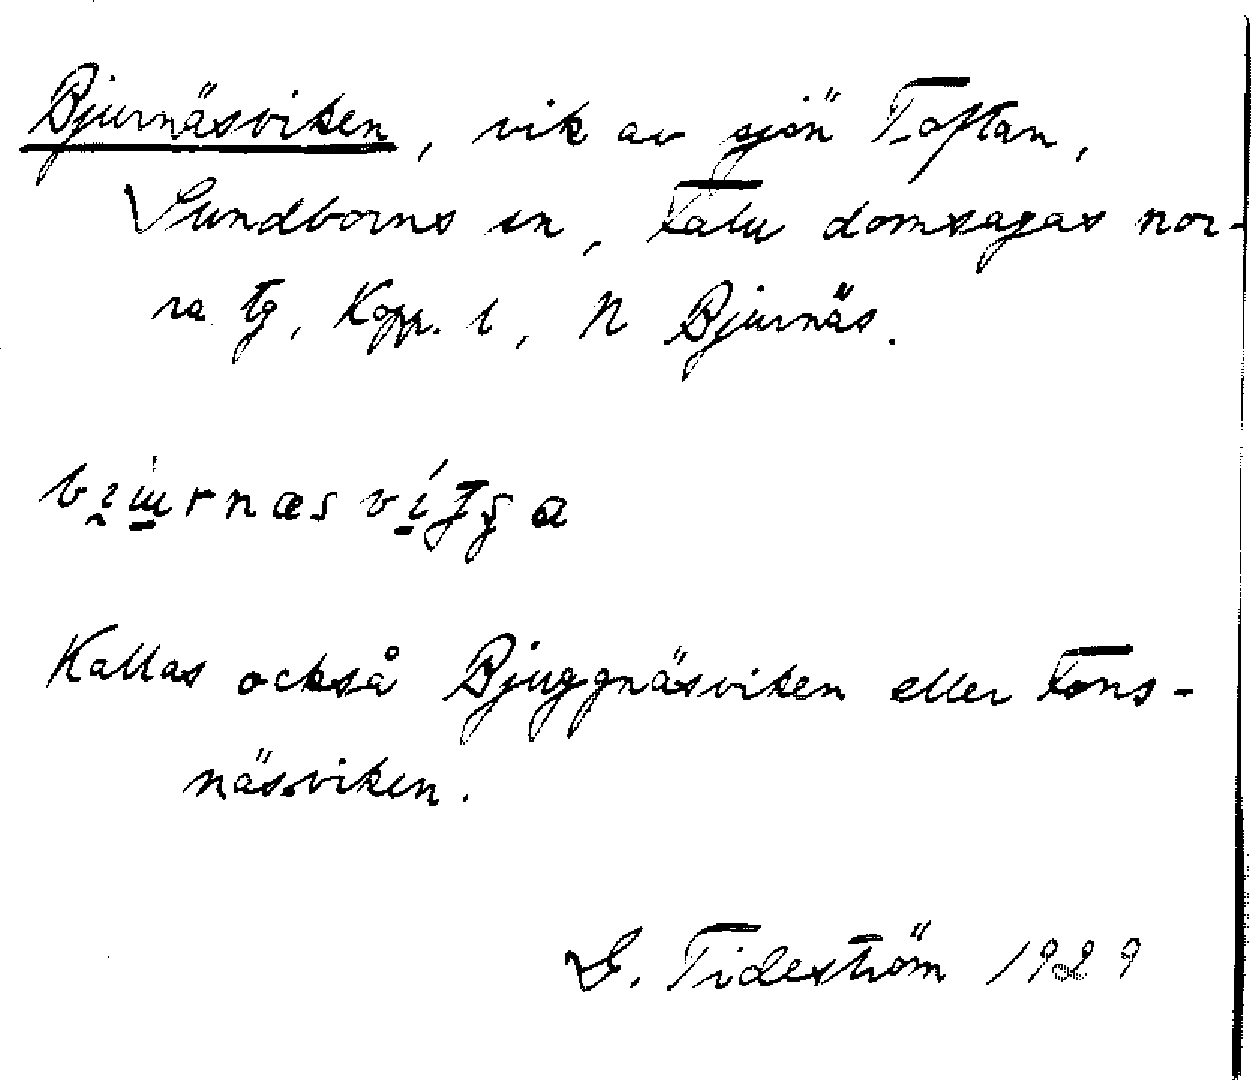 Bjurnäsviken, vik av sjön Toftan,
Sundborns sn, Falu domsagas nor-
ra tg, Kopp. l, N Bjurnäs.
Kallas också Bjuggnäsviken eller Fons-
näsviken.
G. Tideström 1929